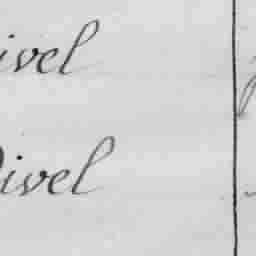 ivel
ivel